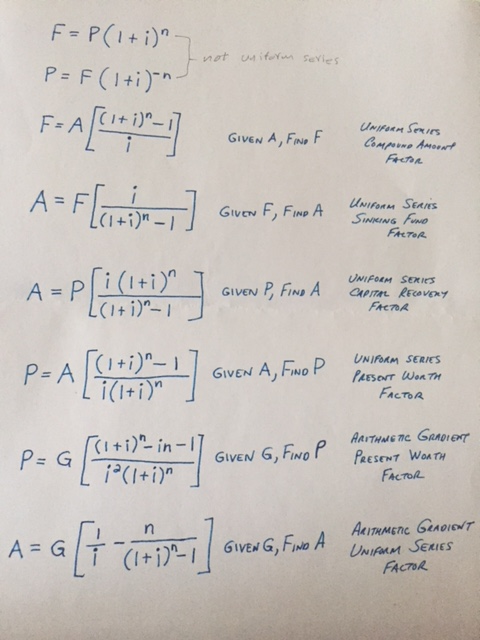 F = P(1+i)ⁿ
not uniform series
P = F(1+i)⁻ⁿ
F = A [((1+i)ⁿ-1)/i] GIVEN A, FIND F UNIFORM SERIES
COMPOUND AMOUNT
FACTOR
A = F [i/((1+i)ⁿ-1)] GIVEN F, FIND A UNIFORM SERIES
SINKING FUND
FACTOR
A = P [i(1+i)ⁿ/((1+i)ⁿ-1)] GIVEN P, FIND A UNIFORM SERIES
CAPITAL RECOVERY
FACTOR
P = A [((1+i)ⁿ-1)/(i(1+i)ⁿ)] GIVEN A, FIND P UNIFORM SERIES
PRESENT WORTH
FACTOR
P = G [((1+i)ⁿ-in-1)/(i²(1+i)ⁿ)] GIVEN G, FIND P ARITHMETIC GRADIENT
PRESENT WORTH
FACTOR
A = G [1/i - n/((1+i)ⁿ-1)] GIVEN G, FIND A ARITHMETIC GRADIENT
UNIFORM SERIES
FACTOR